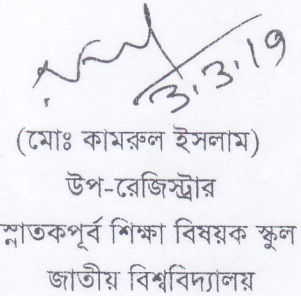 3.3.19
(মোঃ কামরুল ইসলাম)
উপ-রেজিস্ট্রার
স্নাতকপূর্ব শিক্ষা বিষয়ক স্কুল
জাতীয় বিশ্ববিদ্যালয়